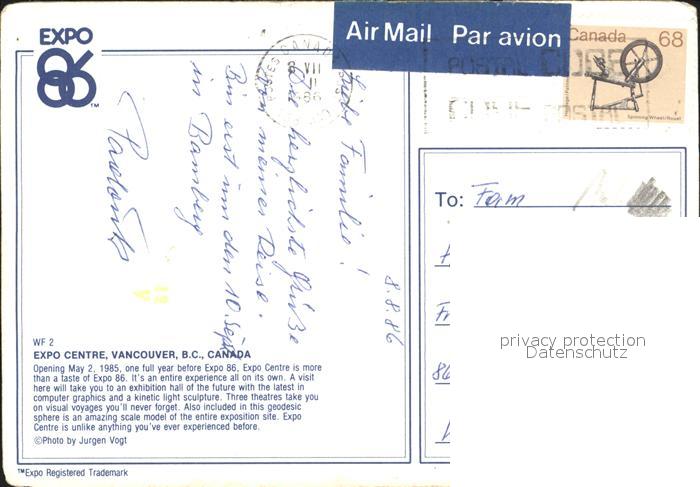 EXPO
86™
Air Mail Par avion
Canada 68
Spinning Wheel/Rouet
8.8.86
Liebe Familie!
Die herzlichste Grüße
von meiner Reise.
Bin erst um den 10. Sept.
in Bamberg
To: Fam
privacy protection
Datenschutz
WF 2
EXPO CENTRE, VANCOUVER, B.C., CANADA
Opening May 2, 1985, one full year before Expo 86, Expo Centre is more
than a taste of Expo 86. It's an entire experience all on its own. A visit
here will take you to an exhibition hall of the future with the latest in
computer graphics and a kinetic light sculpture. Three theatres take you
on visual voyages you'll never forget. Also included in this geodesic
sphere is an amazing scale model of the entire exposition site. Expo
Centre is unlike anything you've ever experienced before.
©Photo by Jurgen Vogt
™Expo Registered Trademark